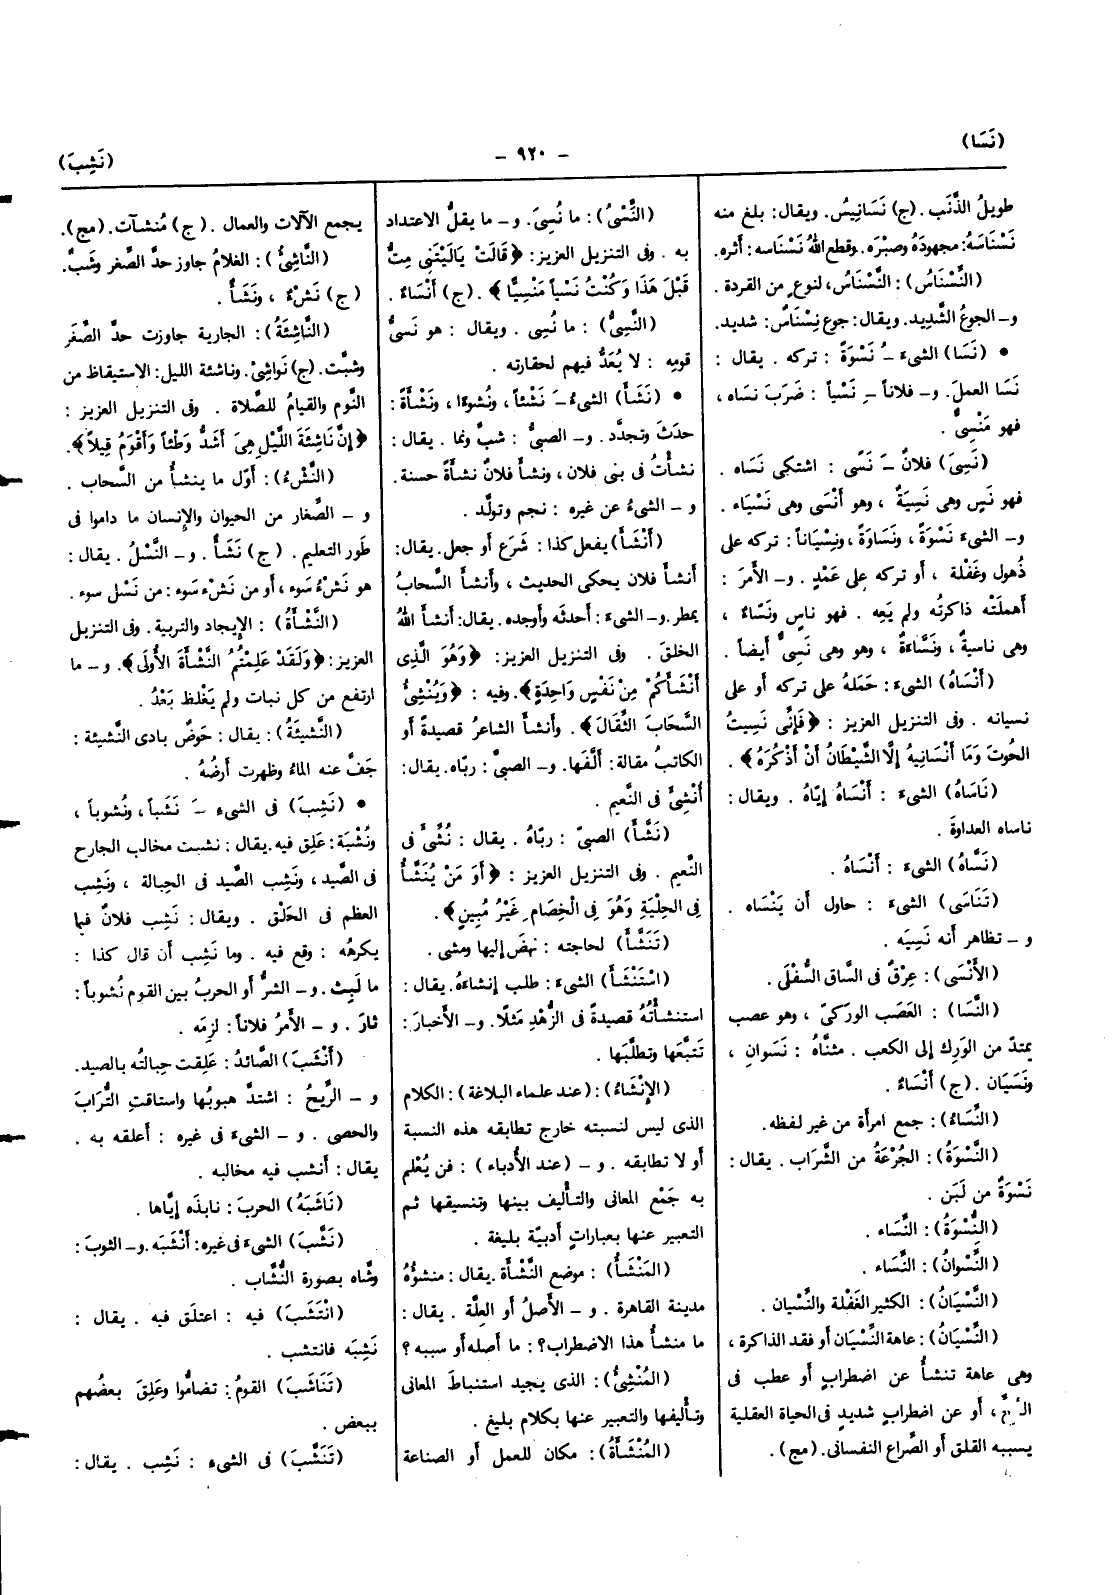 (نَسَا)
— ٩٢٠ —
(نَشِبَ)
طويلُ الذَّنَب . (ج) نَسَانِيسُ. ويقال: بلغ منه
نَسْنَاسَهُ: مجهودَهُ وصبْرَه. وقطع اللهُ نَسْنَاسه: أثره.
(النِّسْنَاسُ) : النَّسْنَاسُ، لنوعٍ من القردة .
و- الجوعُ الشَّدِيد. ويقال: جوع نِسْنَاسٌ: شديد.
• (نَسَا) الشيءَ -ُ نَسْوَةً : تركه . يقال :
نَسَا العملَ. و- فلاناً -ِ نَسْياً : ضَرَبَ نَساه ،
فهو مَنْسِىٌّ .
(نَسِىَ) فلانٌ -َ نَسًى : اشتكى نَسَاه .
فهو نَسٍ وهى نَسِيَةٌ ، وهو أَنْسَى وهى نَسْيَاء .
و- الشيءَ نَسْوَةً ، ونَسَاوَةً ، ونِسْيَاناً : تركه على
ذُهول وغَفْلة ، أو تركه على عَمْدٍ . و- الأَمرَ :
أهملَتْه ذاكرتُه ولم يَعِه . فهو ناسٍ ونَسَّاءٌ ،
وهى ناسيةٌ ، ونَسَّاءَةٌ ، وهو وهى نَسِىٌّ أيضاً .
(أَنْسَاهُ) الشيءَ : حَمَلهُ على تركه أو على
نسيانه . وفى التنزيل العزيز : ﴿فَإِنِّى نَسِيتُ
الحُوتَ وَمَا أَنْسَانِيهُ إلَّا الشَّيْطَانُ أَنْ أَذْكُرَهُ﴾ .
(نَاسَاهُ) الشيءَ : أَنْسَاهُ إيَّاهُ . ويقال :
ناساه العداوةَ .
(نَسَّاهُ) الشيءَ : أَنْسَاهُ .
(تَنَاسَى) الشيءَ : حاول أن يَنْسَاه .
و - تظاهر أنه نَسِيَه .
(الأَنْسَى) : عِرْقٌ فى السَّاق السُّفْلَى .
(النَّسَا) : العَصَب الوَرِكىّ ، وهو عصب
يمتدّ من الوَرِك إلى الكعب . مثنَّاهُ : نَسَوانِ ،
ونَسَيَان . (ج) أَنْسَاءٌ .
(النِّسَاءُ) : جمع امرأة من غير لفظه.
(النَّسْوَةُ) : الجُرْعَةُ من الشَّراب . يقال :
نَسْوَةٌ من لَبَن .
(النُّسْوَةُ) : النِّسَاء .
(النِّسْوانُ) : النِّسَاء .
(النَّسْيَانُ) : الكثير الغَفْلة والنِّسْيان .
(النِّسْيَانُ) : عاهة النِّسْيَان أو فقد الذاكرة ،
وهى عاهة تنشأُ عن اضطرابٍ أو عطب فى
، أو عن اضطرابٍ شديدٍ فى الحياة العقلية
يسببه القلق أو الصِّراع النفسانى. (مج) .
(النِّسْىُ) : ما نُسِىَ. و- ما يقلُّ الاعتداد
به . وفى التنزيل العزيز: ﴿قَالَتْ يَالَيْتَنِى مِتُّ
قَبْلَ هَذَا وَكُنْتُ نَسْياً مَنْسِيًّا﴾ . (ج) أَنْسَاءٌ .
(النَّسِىُّ) : ما نُسِى . ويقال : هو نَسىُّ
قومِه : لا يُعَدُّ فيهم لحقارته .
• (نَشَأَ) الشيءُ -َ نَشْئاً، ونُشوءًا ، ونَشْأَةً :
حدَثَ وتجدَّد. و- الصبىُّ : شبَّ ونما . يقال :
نشأْتُ فى بنى فلان ، ونشأَ فلانٌ نشأَةً حسنة.
و- الشيءُ عن غيره : نجم وتولَّد .
(أَنْشَأَ) يفعل كذا : شَرَع أو جعل. يقال:
أنشأ فلان يحكى الحديث ، وأَنشأَ السَّحابُ
يمطر. و- الشيءَ : أحدثَه وأوجده. يقال: أنشأَ اللهُ
الخلقَ . وفى التنزيل العزيز: ﴿وَهُوَ الَّذِى
أَنْشَأَكُمْ مِنْ نَفْسٍ وَاحِدَةٍ﴾. وفيه : ﴿وَيُنْشِئُ
السَّحَابَ الثِّقَالَ﴾ . وأَنشأَ الشاعرُ قصيدةً أو
الكاتبُ مقالة: ألَّفَها. و- الصبىَّ : ربَّاه. يقال:
أُنْشِئَ فى النَّعيم .
(نَشَّأَ) الصبىَّ : ربَّاهُ . يقال : نُشِّئَ فى
النَّعيم . وفى التنزيل العزيز : ﴿أَوَ مَنْ يُنَشَّأُ
فِى الحِلْيَةِ وَهُوَ فِى الْخِصَامِ غَيْرُ مُبِينٍ﴾.
(تَنَشَّأَ) لحاجته : نهضَ إليها ومشى .
(اسْتَنْشَأَ) الشيءَ : طلب إنشاءَهُ. يقال :
استنشأْتُهُ قصيدةً فى الزُّهْدِ مَثلًا. و- الأخبارَ :
تَتَبَّعَها وتطلَّبَها .
(الإنْشَاءُ) : (عند علماء البلاغة) : الكلام
الذى ليس لنسبته خارج تطابقه هذه النسبة
أو لا تطابقه . و - (عند الأُدباء) : فن يُعْلم
به جَمْع المعانى والتأليف بينها وتنسيقها ثم
التعبير عنها بعباراتٍ أدبيّة بليغة .
(المَنْشَأُ) : موضع النَّشْأَة. يقال : منشؤُهُ
مدينة القاهرة . و - الأَصلُ أو العِلَّة . يقال :
ما منشأُ هذا الاضطراب؟ : ما أصله أو سببه ؟
(المُنْشِئُ) : الذى يجيد استنباطَ المعانى
وتأليفها والتعبير عنها بكلام بليغ .
(المُنْشَأَةُ) : مكان للعمل أو الصناعة
يجمع الآلات والعمال . (ج) مُنشآت. (مج).
(النَّاشِئُ) : الغلامُ جاوز حدَّ الصِّغر وشَبَّ.
(ج) نَشْءٌ ، ونَشَأٌ .
(النَّاشِئَةُ) : الجارية جاوزت حدَّ الصِّغَرِ
وشبَّت. (ج) نَواشِئُ. وناشئة الليل: الاستيقاظ من
النَّوم والقيامُ للصَّلاة . وفى التنزيل العزيز :
﴿إنَّ نَاشِئَةَ اللَّيْلِ هِىَ أَشَدُّ وَطْئاً وَأَقْوَمُ قِيلاً﴾.
(النَّشْءُ) : أوّل ما ينشأُ من السَّحاب .
و - الصِّغار من الحيوان والإنسان ما داموا فى
طَور التعليم . (ج) نَشَأٌ . و- النَّسْلُ . يقال :
هو نَشْءُ سَوء ، أو من نَشْءِ سَوء : من نَسْل سوء .
(النَّشْأَةُ) : الإيجاد والتربية . وفى التنزيل
العزيز: ﴿وَلَقَدْ عَلِمْتُمُ النَّشْأَةَ الأُولَى﴾. و- ما
ارتفع من كل نبات ولم يَغْلظ بَعْدُ .
(النَّشيئَةُ) : يقال : حَوضٌ بادى النَّشيئة :
جَفَّ عنه الماءُ وظهرت أرضُهُ .
• (نَشِبَ) فى الشيء -َ نَشَباً ، ونُشوباً ،
ونُشْبَة : عَلِق فيه. يقال : نشبت مخالب الجارح
فى الصَّيد ، ونَشِب الصَّيد فى الحِبالة ، ونَشِب
العظم فى الحَلْق . ويقال : نَشِب فلانٌ فيما
يكرهُه : وقع فيه . وما نَشِب أن قال كذا :
ما لَبِثَ . و- الشرُّ أو الحربُ بين القوم نُشوباً :
ثارَ . و - الأَمرُ فلاناً : لزمه .
(أَنْشَبَ) الصَّائدُ : عَلِقت حِبالتُه بالصيد.
و - الرِّيحُ : اشتدَّ هبوبُها واستاقت التُّرابَ
والحصى . و - الشيءَ فى غيره : أعلقه به .
يقال : أنشب فيه مخالبه .
(نَاشَبَهُ) الحربَ : نابذَه إيَّاها .
(نَشَّبَ) الشيءَ فى غيره: أَنْشَبَه. و- الثوبَ :
وشَّاه بصورة النُّشَّاب .
(انْتَشَبَ) فيه : اعتلَق فيه . يقال :
نَشِبَه فانتشب .
(تَنَاشَبَ) القومُ : تضامُّوا وعَلِقَ بعضُهم
ببعض .
(تَنَشَّبَ) فى الشيءِ : نَشِب . يقال :